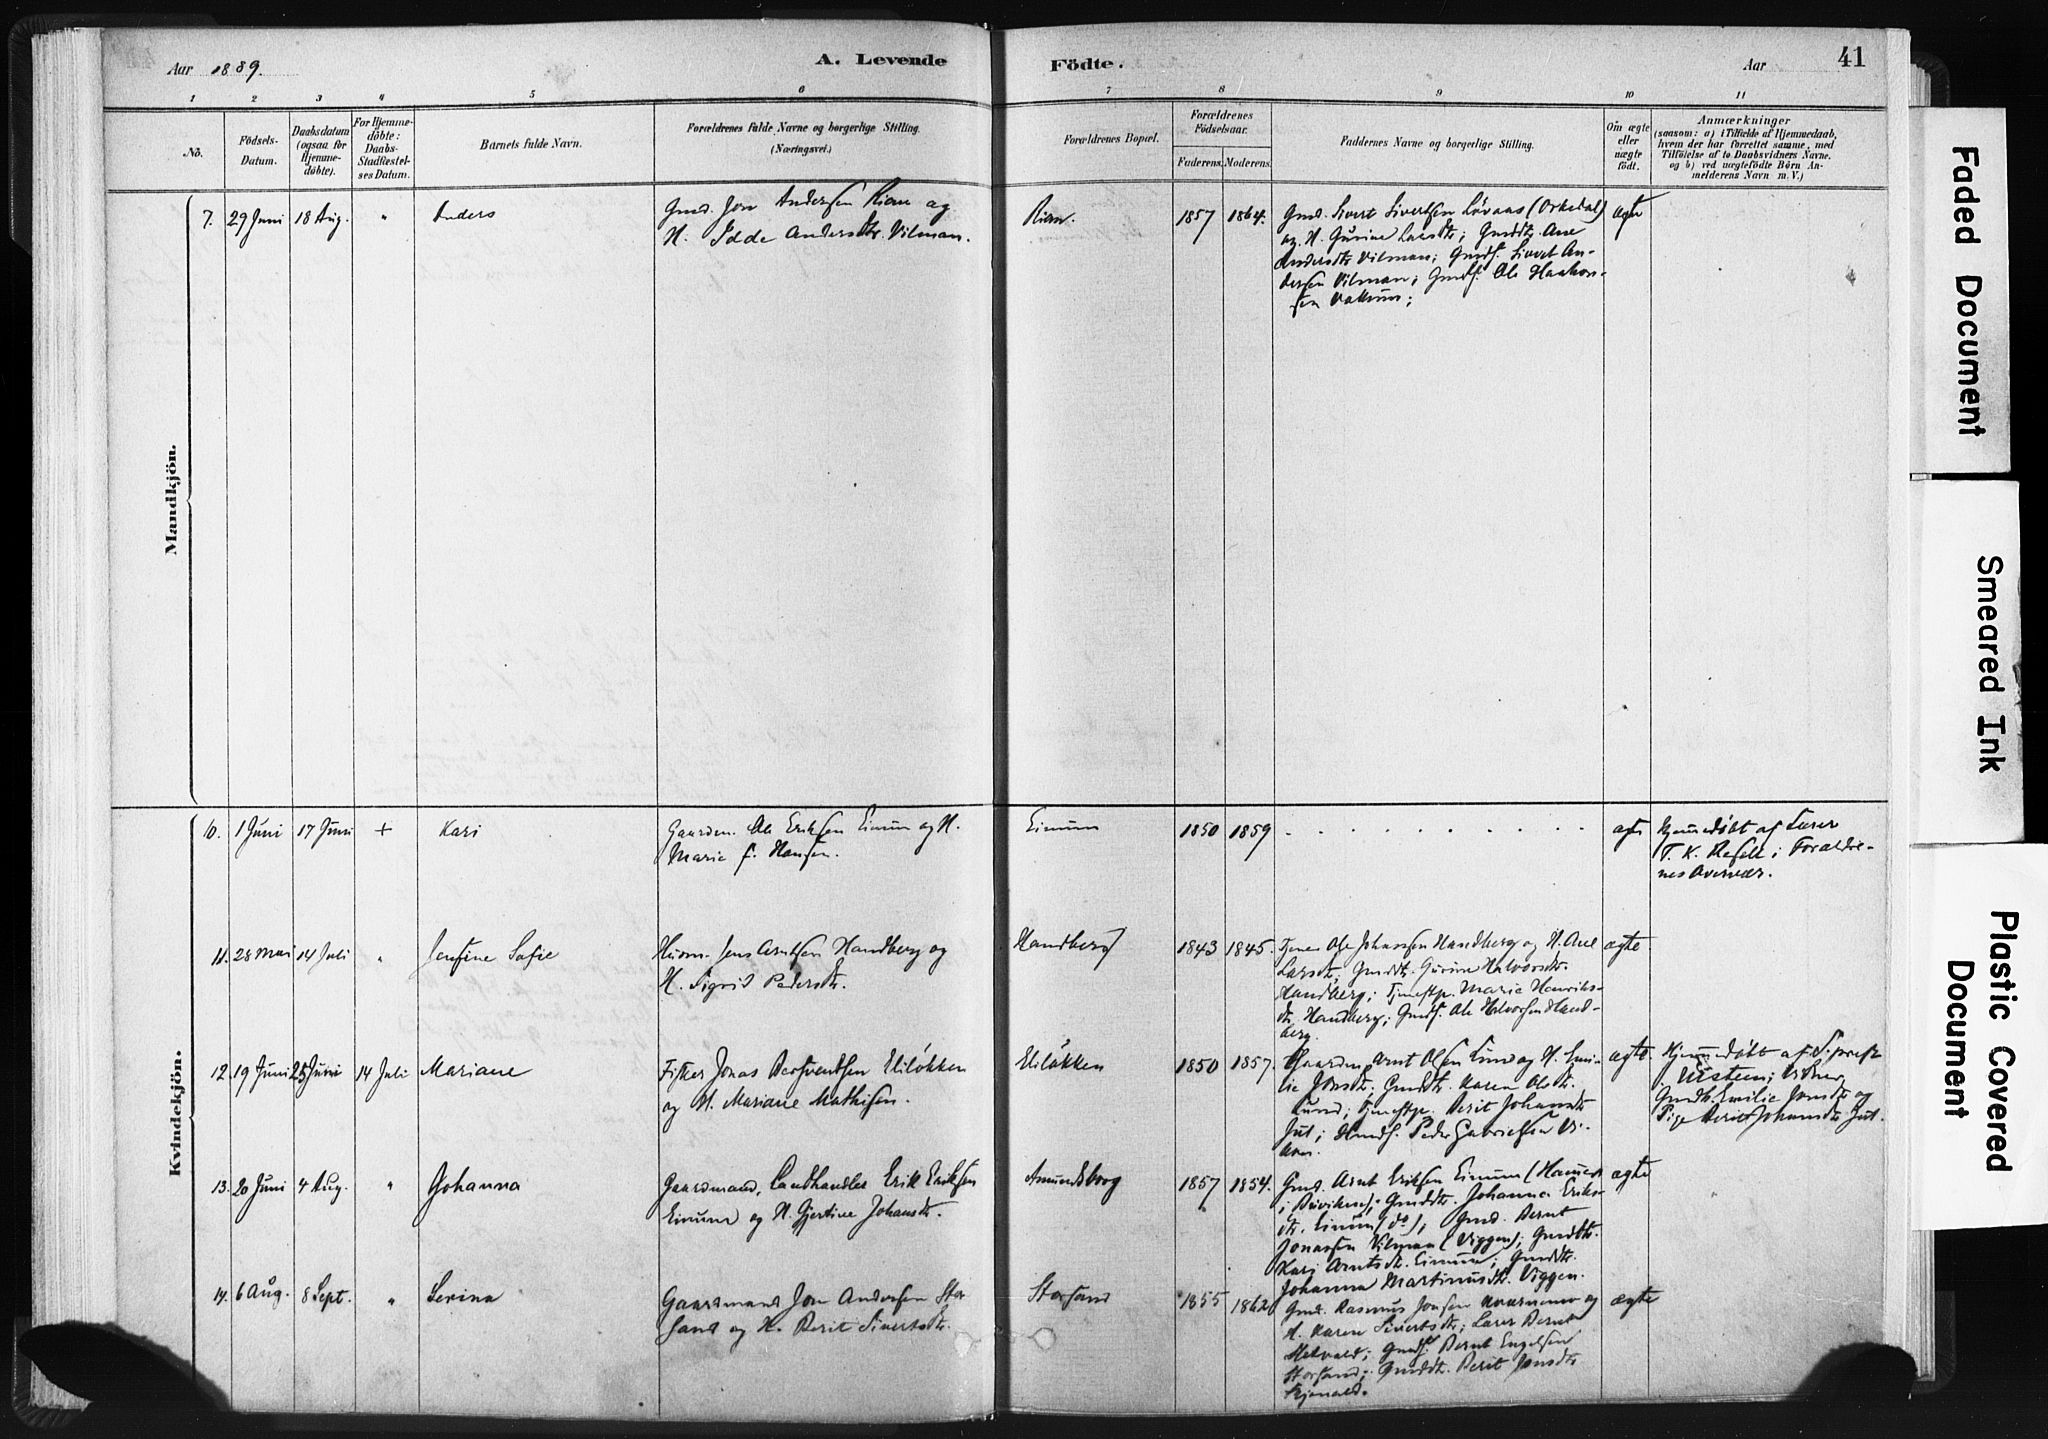 Aar 1889.
A. Levende
Födte.
Aar
41
1 2 3 4 5 6 7 8 9 10 11
No.
Födsels-
Datum.
Daabsdatum
(ogsaa for
Hjemme-
døbte).
For Hjemme-
døbte:
Daabs-
Stadfæstel-
ses Datum.
Barnets fulde Navn.
Forældrenes fulde Navne og borgerlige Stilling.
(Næringsvei.)
Forældrenes Bopæl.
Forældrenes
Födselsaar.
Faderens. Moderens.
Faddernes Navne og borgerlige Stilling.
Om ægte
eller
uægte
födt.
Anmærkninger
(saasom: a) i Tilfælde af Hjemmedaab,
hvem der har forrettet samme, med
Tilföielse af to Daabsvidners Navne,
og b) ved uægtefödte Börn An-
melderens Navn m. V.)
Mandkjön.
7. 29 Juni 18 Aug. " Anders
Gmd. Jon Andersen Rian og
H. Idde Andersdtr. Vilman.
Rian.
1857 1864.
Gmd. Sivert Sivertsen Lövaas (Orkedal)
og H. Gurine Larsdtr; Gmddtr. Ane
Andersdtr Vilman; Gmds. Sivert An-
dersen Vilman; Gmds. Ole Haakon-
sen
ægte
Kvindekjön.
10. 1 Juni 17 Juni + Kari
Gaardm. Ole Eriksen Eimun og H.
Marie f. Hansen.
Eimun
1850 1859
ægte
Hjemmedøbt af Lærer
T. K. i Forældre-
nes Overvær.
11. 28 Mai 14 Juli " Jensine Sofie
Husm. Jens Arntsen Handberg og
H. Sigrid Pedersdtr.
Handberg
1843 1845.
Tjener Ole Johnssen Handberg og H. Ane
Larsdtr; Gmddtr. Gurine Halvorsdtr.
Handberg; Tjenestp. Marie Henriks-
dtr. Handberg; Gmds. Ole Halvorsen Hand-
berg.
ægte
12. 19 Juni 25 Juni 14 Juli Mariane
Fisker Jonas Bersventsen Eliløkken
og H. Mariane Mathisen.
Eliløkken
1850 1857.
Gaardm. Arnt Olsen Lund og H. Emi-
lie Jonsdtr. Gmddtr. Karen Olsdtr.
Lund; Tjenestp. Berit Johansdtr
Jul; Peder Gabrielsen
ægte
Hjemmedøbt af S. præst
Gmdk. Emilie Jonsdtr og
Pige Berit Johansdtr Jul.
13. 20 Juni 4 Aug. " Johanna
Gaardmand, Landhandler Erik Eriksen
Eimun og H. Gjertine Johansdtr.
Amundsborg
1857 1854.
Gmd. Arnt Eriksen Eimun (Hammer
i Buviken); Gmddtr. Johanna Eriks-
dtr. Eimun (do); Gmd. Bernt
Jonassen Vilman (Viggen); Gmddtr.
Kari Arntsdtr. Eimun; Gmddtr.
Johanna Martinusdtr. Viggen.
ægte
14. 6 Aug. 8 Sept. " Serina
Gaardmand Jon Andersen Stor
sand og H. Berit Sivertsdtr.
Storsand
1855 1862
Gmd. Rasmus Jonsen og
H. Karen Sivertsdtr; Lærer Bernt
Gmds. Bernt Engelsen
Storsand; Gmddtr. Berit Jonsdtr
ægte
Faded Document
Smeared Ink
Plastic Covered
Document